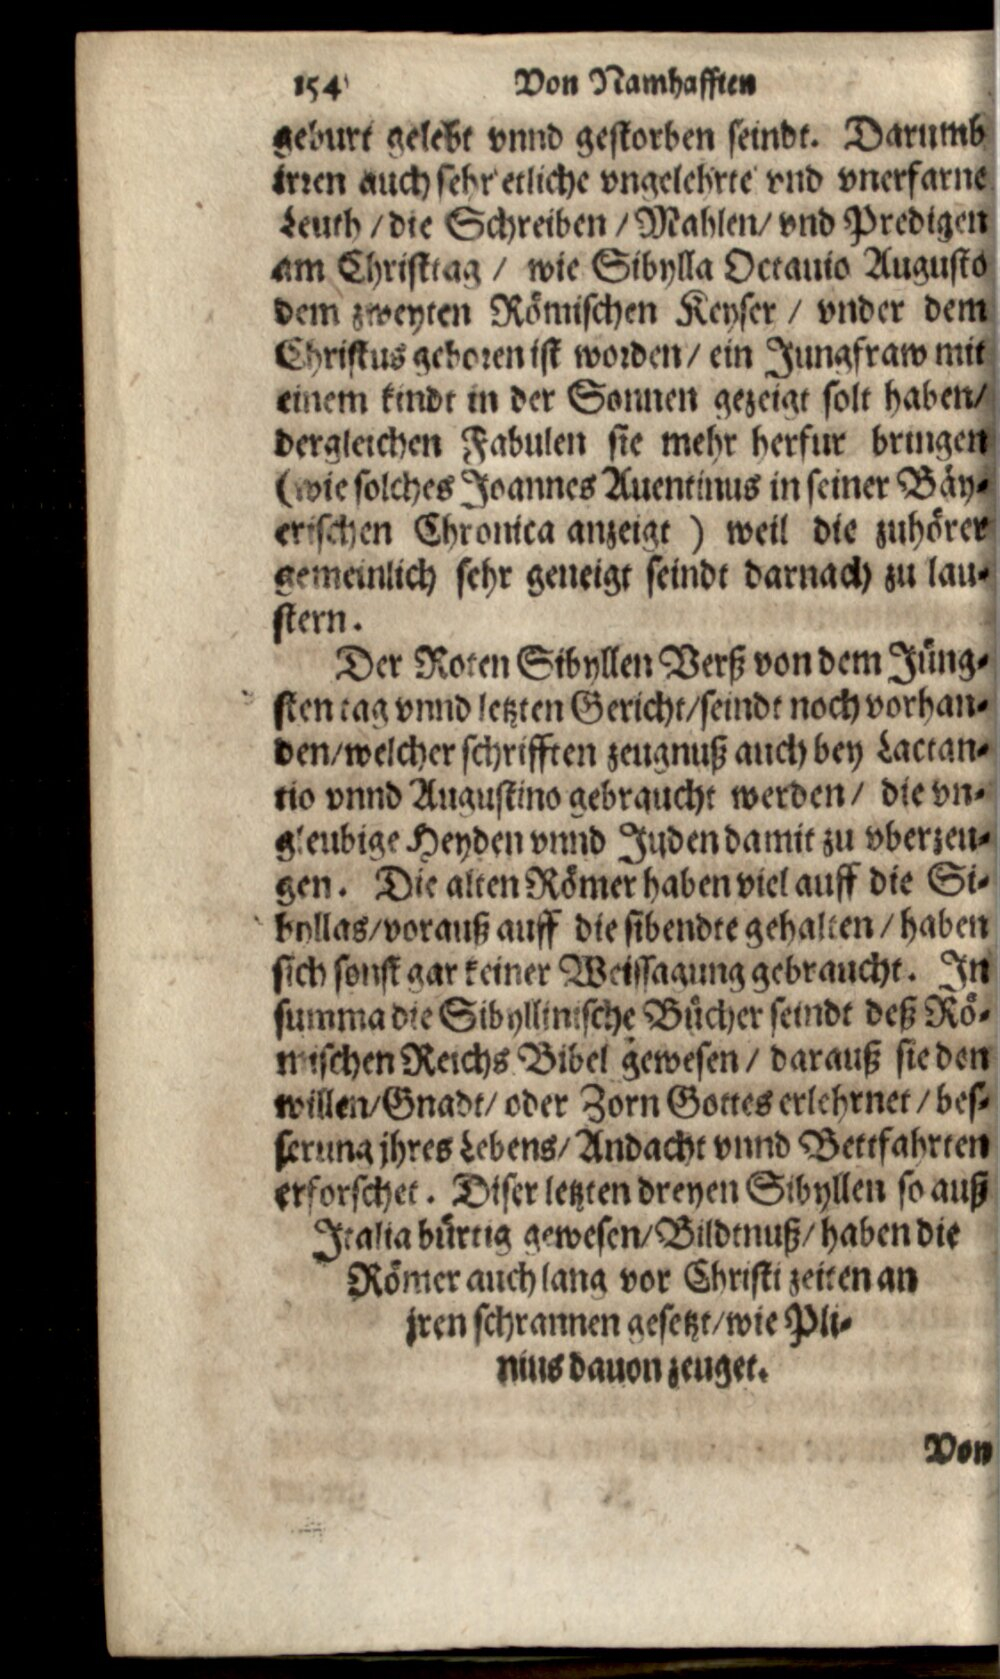 154 Von Namhafften
geburt gelebt vnnd gestorben seindt. Darumb
irren auch sehr etliche vngelehrte vnd vnerfarne
Leuth / die Schreiben / Mahlen / vnd Predigen
am Christtag / wie Sibylla Octauio Augusto
dem zweyten Römischen Keyser / vnder dem
Christus geboren ist worden / ein Jungfraw mit
einem kindt in der Sonnen gezeigt solt haben /
dergleichen Fabulen sie mehr herfur bringen
(wie solches Joannes Auentinus in seiner Bäy-
erischen Chronica anzeigt ) weil die zuhörer
gemeinlich sehr geneigt seindt darnach zu lau-
stern.
Der Roten Sibyllen Verß von dem Jüng-
sten tag vnnd letzten Gericht / seindt noch vorhan-
den / welcher schrifften zeugnuß auch bey Lactan-
tio vnnd Augustino gebraucht werden / die vn-
gleubige Heyden vnnd Juden damit zu vberzeu-
gen. Die alten Römer haben viel auff die Si-
byllas / vorauß auff die sibendte gehalten / haben
sich sonst gar keiner Weissagung gebraucht. In
summa die Sibyllinische Bücher seindt deß Rö-
mischen Reichs Bibel gewesen / darauß sie den
willen / Gnadt / oder Zorn Gottes erlehrnet / bes-
serung jhres Lebens / Andacht vnnd Bettfahrten
erforschet. Diser letzten dreyen Sibyllen so auß
Italia bürtig gewesen / Bildtnuß / haben die
Römer auch lang vor Christi zeiten an
jren schrannen gesetzt / wie Pli-
nius dauon zeuget.
Von